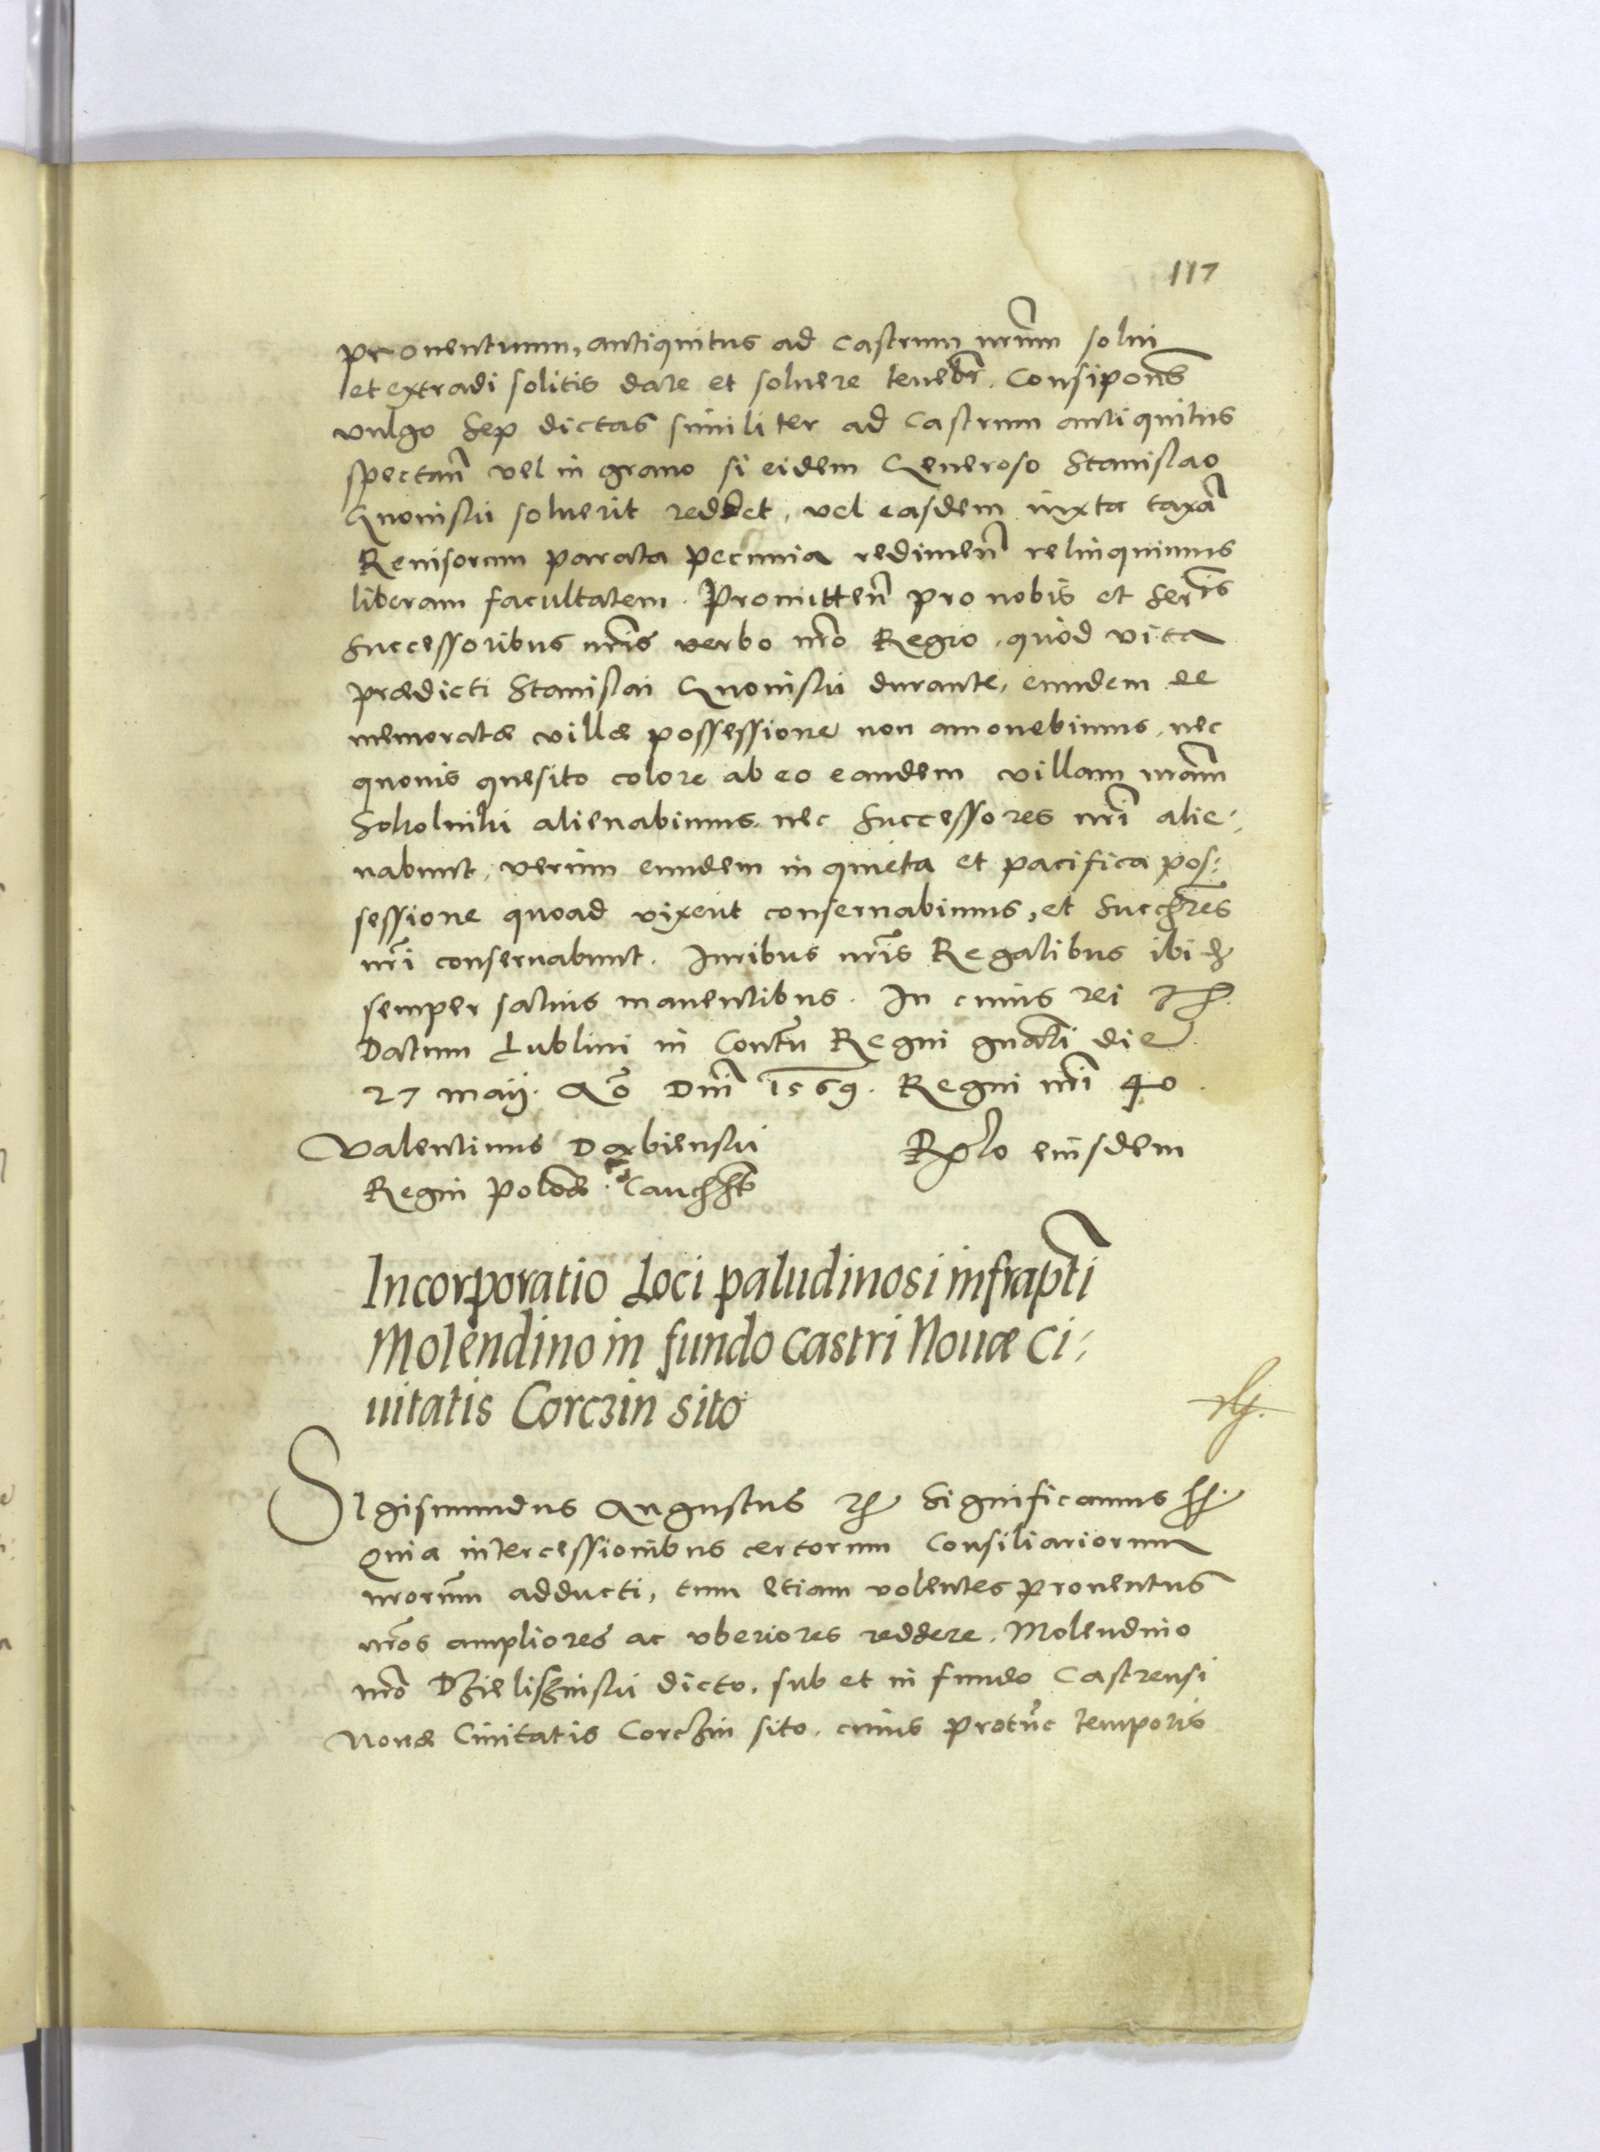 117
prouentuum, antiquitus ad Castrum nrum solui
et extradi solitis dare et soluere tenebr. Consipons
vulgo Sep dictas similiter ad Castrum antiquitus
spectan vel in grano si eidem Generoso Stanislao
Gnoinskii soluerit reddet, vel easdem iuxta taxa
Reuisorum parata pecunia redimen relinquimus
liberam facultatem. Promitten pro nobis et Seris
Successoribus nris verbo nro Regio, quod vita
prædicti Stanislai Gnoinskii durante, eundem ee
memoratæ villæ possessione non amouebimus, nec
quouis quesito colore ab eo eandem villam nram
Sokolniki alienabimus, nec Successores nri alie-
nabunt, verum eundem in quieta et pacifica pos-
sessione quoad vixerit conseruabimus, et Succres
nri conseruabunt. Iuribus nris Regalibus ibi
semper saluis manentibus. In cuius rei
Datum Lublini in Contu Regni gnali die
27 maij. Ao Dni 1569. Regni nri 40.
Valentinus Dębiensky
Regni Polonæ Canc
Rlo eiusdem
Incorporatio Loci paludinosi infrapti
Molendino in fundo Castri Nouæ Ci-
uitatis Corczin sito
Sigismundus Augustus Significamus
Quia intercessionibus certorum Consiliariorum
nrorum adducti, tum etiam volentes prouentus
nros ampliores ac vberiores reddere, Molendino
nro Dzieliszinskii dicto, sub et in fundo Castrensi
Nouæ Ciuitatis Corczin sito, cuius protunc temporis